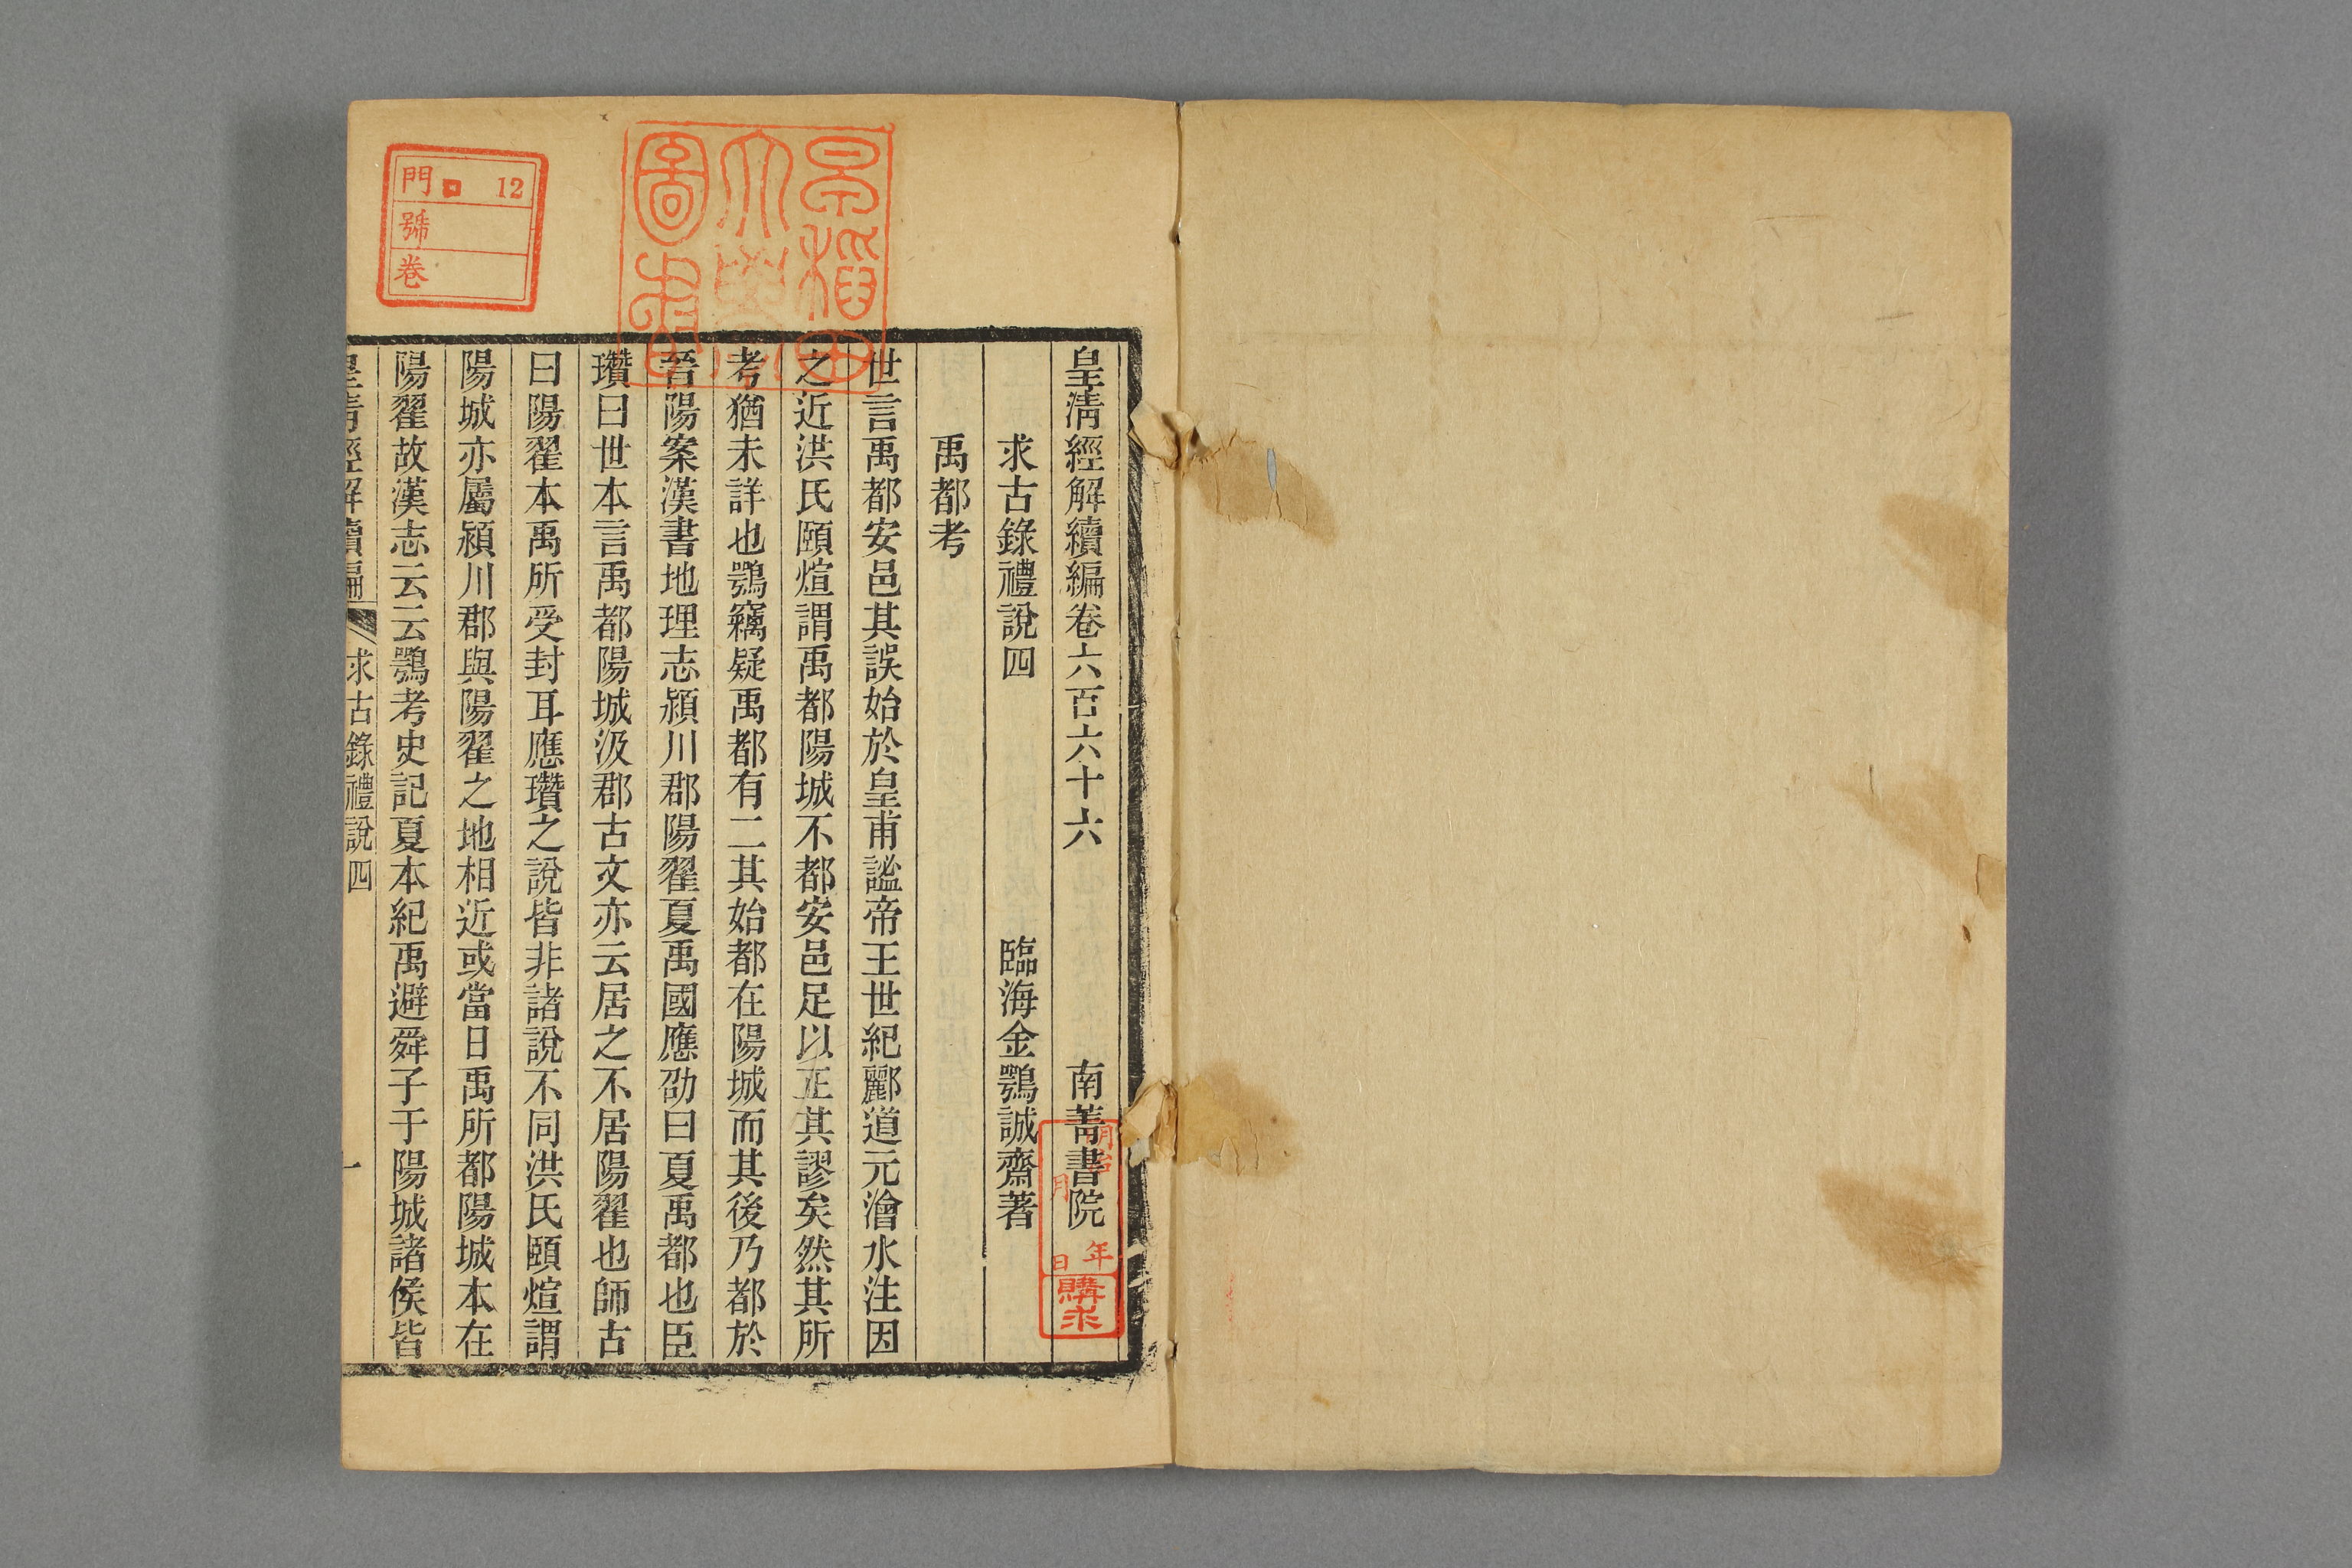 皇淸經解續編卷六百六十六 南菁書院
求古錄禮說四 臨海金鶚誠齋著
禹都考
世言禹都安邑其誤始於皇甫謐帝王世紀酈道元澮水注因
之近洪氏頤煊謂禹都陽城不都安邑足以正其謬矣然其所
考猶未詳也鶚竊疑禹都有二其始都在陽城而其後乃都於
晉陽案漢書地理志潁川郡陽翟夏禹國應劭曰夏禹都也臣
瓚曰世本言禹都陽城汲郡古文亦云居之不居陽翟也師古
曰陽翟本禹所受封耳應瓚之說皆非諸說不同洪氏頤煊謂
陽城亦屬潁川郡與陽翟之地相近或當日禹所都陽城本在
陽翟故漢志云云鶚考史記夏本紀禹避舜子于陽城諸侯皆
皇清經解續編 求古錄禮說四 一
早稻田大學圖書
門 口 12
號
卷
明治 年
月 日
購求